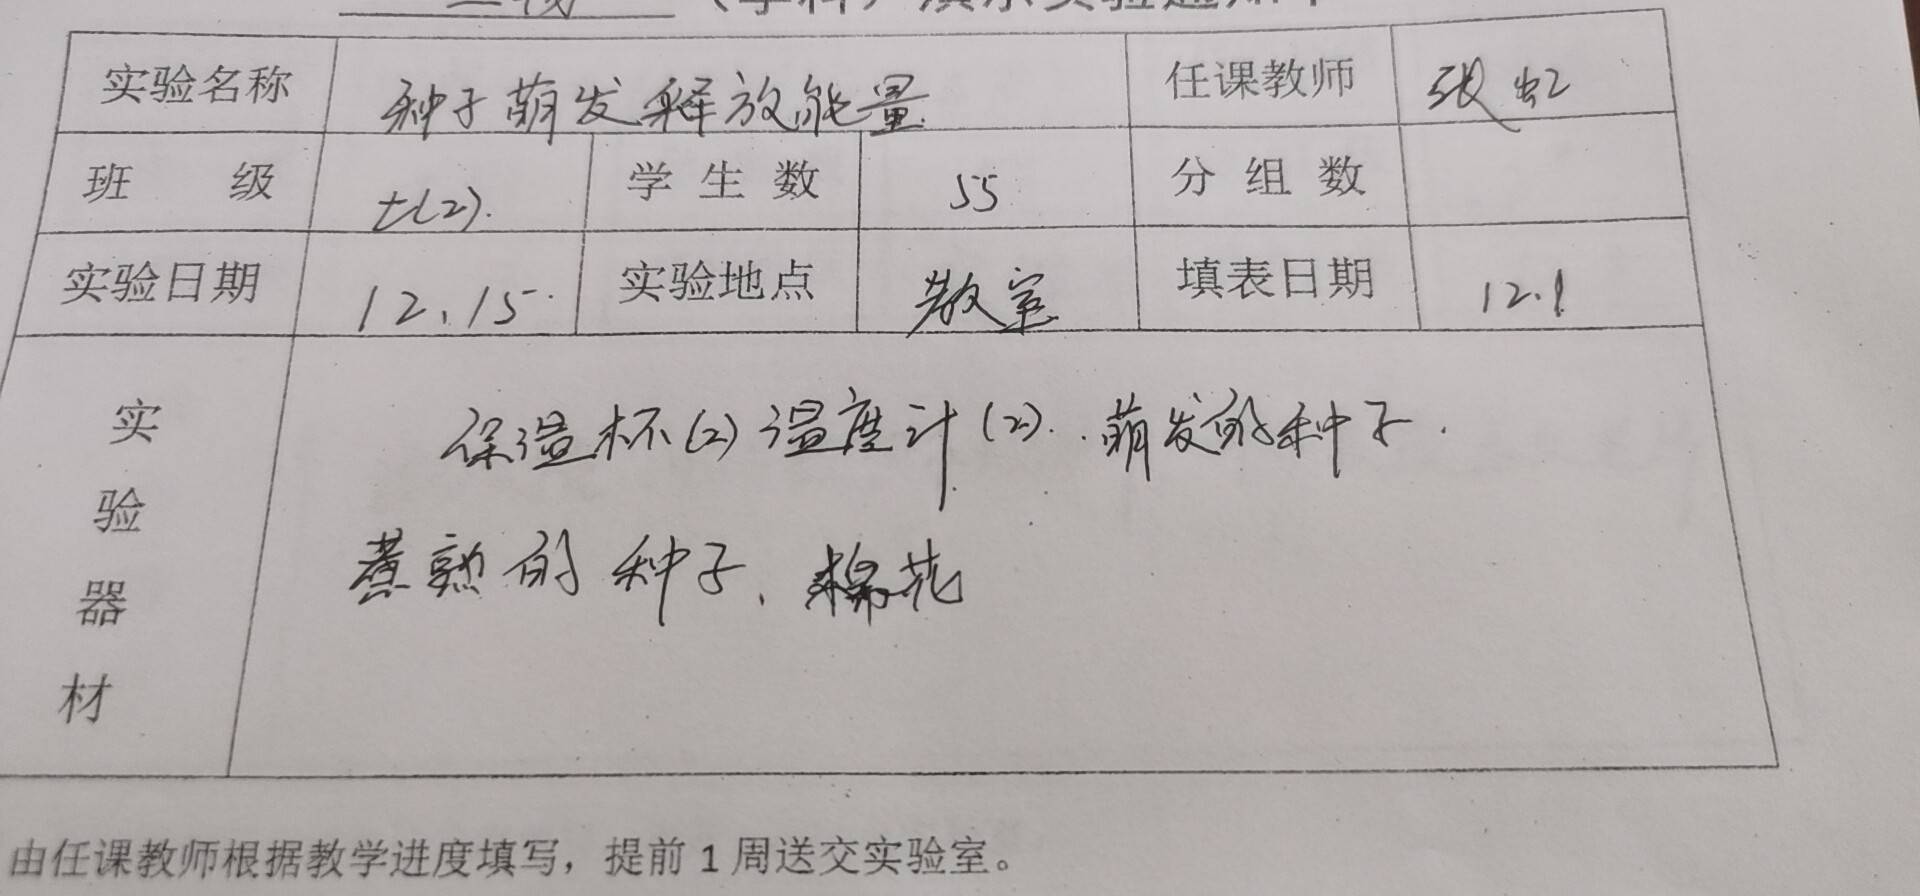 生物（学科）演示实验通知单
实验名称 种子萌发释放能量 任课教师 张虹
班 级 七(2). 学生数 55 分组数
实验日期 12.15. 实验地点 教室 填表日期 12.1
实验器材
保温杯(2) 温度计(2). 萌发的种子.
煮熟的种子、棉花
由任课教师根据教学进度填写，提前1周送交实验室。